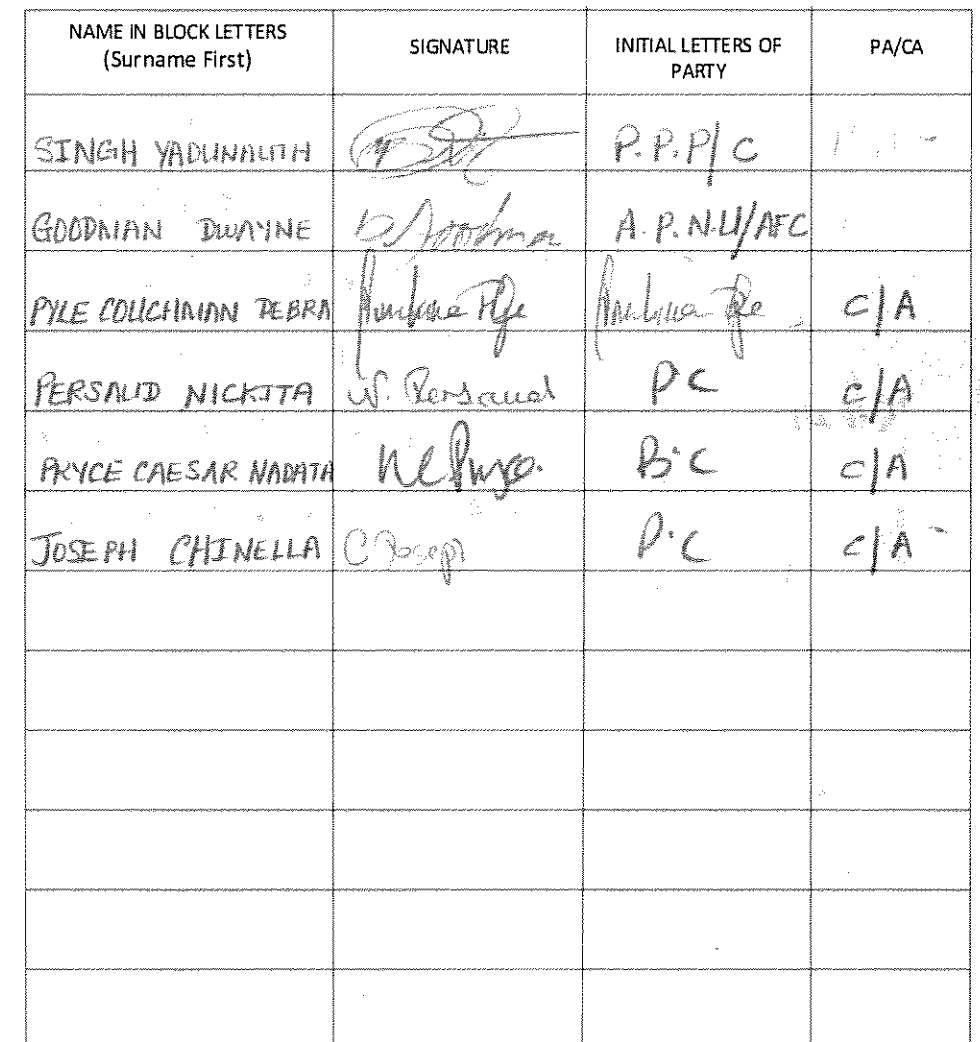 NAME IN BLOCK LETTERS (Surname First) SIGNATURE INITIAL LETTERS OF PARTY PA/CA
SINGH YADUNAUTH P.P.P/C
GOODMAN DWAYNE D Goodman A.P.N.U/AFC
PYLE COUCHMAN DEBRA C/A
PERSAUD NICKITA N. Persaud P.C C/A
PRYCE CAESAR NADATA B.C C/A
JOSEPH CHINELLA C Joseph P.C C/A